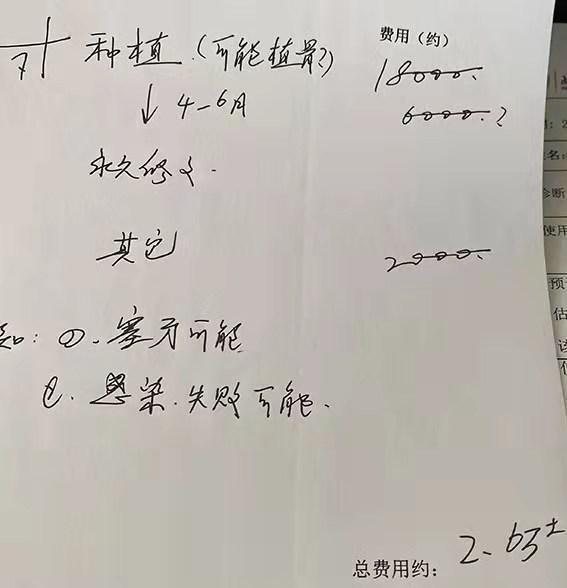 费用（约）
7 种植（可能植骨?）
18000.
↓ 4-6月
6000.?
永久修复.
其它
2000.
知: ①. 塞牙可能
②. 感染. 失败可能.
总费用约: 2.6万±
断
使用
预
估